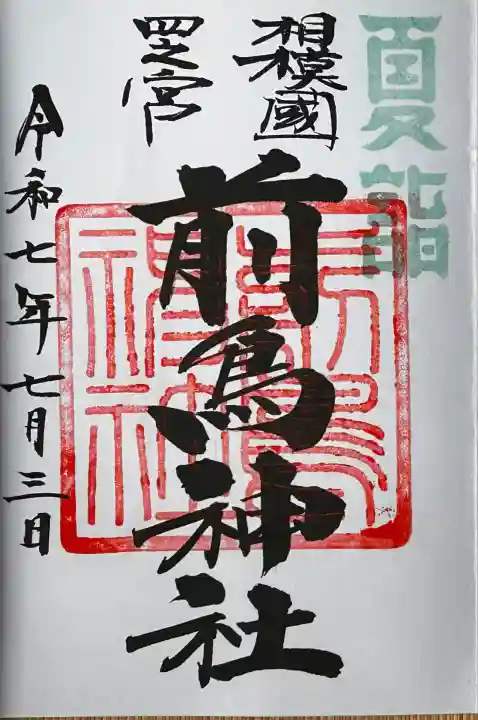 夏詣
相模國
四之宮
前鳥神社
令和七年七月三日